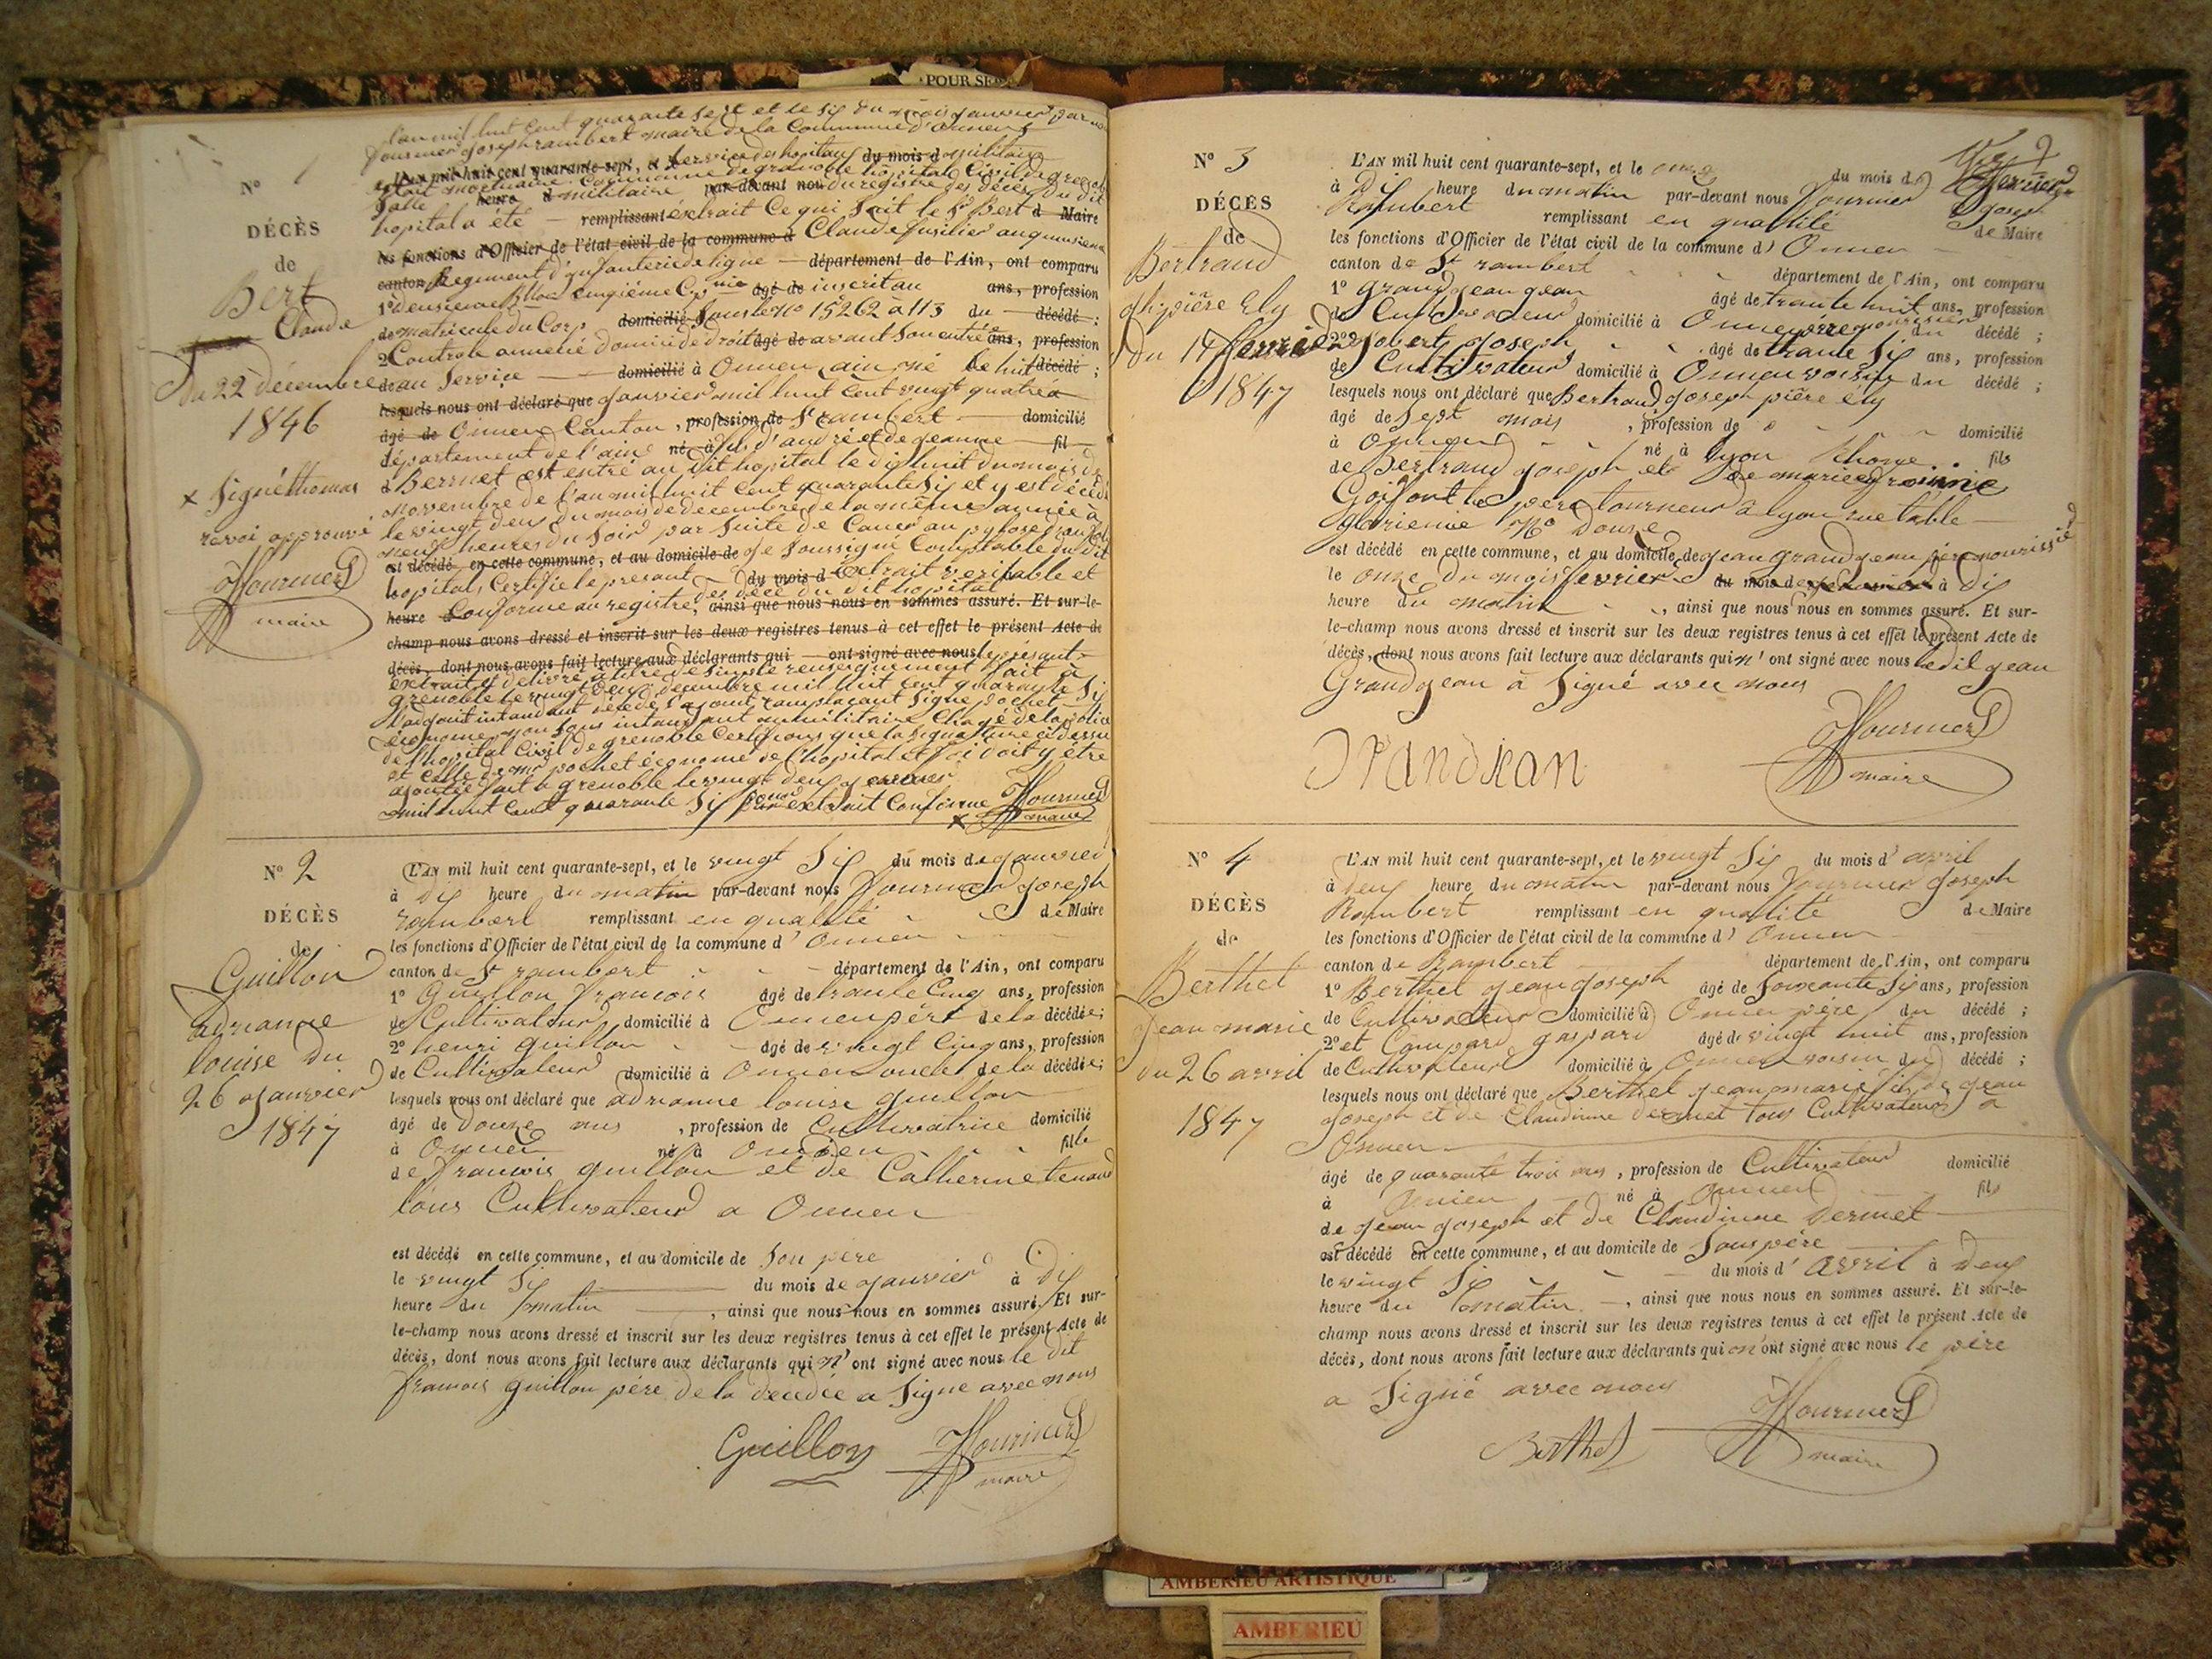 POUR SE
l'an mil huit cent quarante sept et le six du mois janvier par nous
fournier joseph rambert maire de la Commune d'onnen
N° 1
DÉCÈS
de
Bert
Claude
Du 22 décembre
1846
x Signé thomas
revoi approuvé
Jfournier
maire
L'an mil huit cent quarante-sept, et Service des hopitaux du mois d militaire
extrait mortuaire Commune de grenoble hôpital Civil de grenoble
Salle heure d militaire par-devant nou du registre des décès du dit
hopital a été remplissant éxtrait Ce qui Suit le Sr Bert d Maire
les fonctions d'Officier de l'état civil de la commune d Claude fusilier au quinsieme
canton Regiment d'infanterie de ligne département de l'Ain, ont comparu
1° deuxieme Bllon Cinqième Cgnie agé de inscrit au ans, profession
de matricule du Corp domicilié Sous le no 15262 à 113 du décédé ;
2 Controle annelié domicile de droit agé de avant Son entré ans, profession
de au Service domicilié à Onnen, ain, né le huit décédé ;
lesquels nous ont déclaré que janvier mil huit cent vingt quatre à
âgé de Onnen Canton, profession de St rambert domicilié
département de l'ain né à fils d'andré et de jeanne fil
d Bermet est entré au dit hopital le dix huit du mois de
novembre de l'an mil huit Cent quarante Six et y est décédé
le vingt deux du mois de decembre de la même année à
neuf heures du Soir par Suite de Cancer au pylore
est décédé en cette commune, et au domicile de Je Soussigné Comptable du dit
hopital, Certifie le present du mois d Extrait veritable et
heure Conforme au registre, des déce du dit hopital ainsi que nous nous en sommes assuré. Et sur-le-
champ nous avons dressé et inscrit sur les deux registres tenus à cet effet le présent Acte de
décès, dont nous avons fait lecture aux déclarants qui ont signé avec nous le present
extrait et delivré a titre de Simple renseignement fait à
grenoble le vingt deux decembre mil huit cent quarante Six
économe, nous Sous intandant militaire Chargé de la police
de l'hopital Civil de grenoble Certifions que la Signature ci dessu
et Celle de mr pochet économe de l'hopital et foi doit y être
ajoutée fait à grenoble le vingt deux
mil huit Cent quarante Six pour extrait Conforme Jfournier
x maire
N° 2
DÉCÈS
de
Guillon
adrianne
louise du
26 janvier
1847
L'AN mil huit cent quarante-sept, et le vingt Six du mois de janvier
à dix heure du matin par-devant nous fournier joseph
rambert remplissant en qualité de Maire
les fonctions d'Officier de l'état civil de la commune d' Onnen
canton de St rambert département de l'Ain, ont comparu
1° Guillon francois âgé de trante Cinq ans, profession
de Cultivateur domicilié à Onnen père de la décédée ;
2° henri guillon âgé de vingt Cinq ans, profession
de Cultivateur domicilié à Onnen oncle de la décédée ;
lesquels nous ont déclaré que adrianne louise guillon
âgé de douze ans, profession de Cultivatrice domicilié
à Onnen né à Onnen fille
de francois guillon et de Catherine tenand
tous Cultivateur a Onnen
est décédé en cette commune, et au domicile de Son père
le vingt Six du mois de janvier à Dix
heure du matin, ainsi que nous nous en sommes assuré. Et sur-
le-champ nous avons dressé et inscrit sur les deux registres tenus à cet effet le présent Acte de
décès, dont nous avons fait lecture aux déclarants qui n' ont signé avec nous le dit
francois guillon père de la decedée a Signe avec nous
Guillon Jfournier
maire
N° 3
DÉCÈS
de
Bertrand
j pière Ely
Du 11 fevrier
1847
L'AN mil huit cent quarante-sept, et le onze du mois de fevrier
à Dix heure du matin par-devant nous fournier joseph
Rambert remplissant en qualité de Maire
les fonctions d'Officier de l'état civil de la commune d' Onnen
canton de St rambert département de l'Ain, ont comparu
1° grandjean jean âgé de trante huit ans, profession
de Cultivateur domicilié à Onnen père nourissier du décédé ;
2° jobert joseph âgé de trante Six ans, profession
de Cultivateur domicilié à Onnen voisin du décédé ;
lesquels nous ont déclaré que Bertrand joseph pière ély
âgé de Sept mois, profession de domicilié
à Onnen né à lyon Rhone fils
de Bertrand joseph et de marie
Goifont le père tourneur à lyon rue table
No Douze
est décédé en cette commune, et au domicile de jean grandjean père nourissié
le onze du mois fevrier du mois de à dix
heure du matin, ainsi que nous nous en sommes assuré. Et sur-
le-champ nous avons dressé et inscrit sur les deux registres tenus à cet effet le présent Acte de
décès, dont nous avons fait lecture aux déclarants qui n' ont signé avec nous le dit jean
Grandjean à Signé avec nous
Grandjean
Jfournier
maire
N° 4
DÉCÈS
de
Berthet
Jean marie
du 26 avril
1847
L'AN mil huit cent quarante-sept, et le vingt Six du mois d' avril
à deux heure du matin par-devant nous fournier joseph
Rambert remplissant en qualité de Maire
les fonctions d'Officier de l'état civil de la commune d' Onnen
canton de Rambert département de l'Ain, ont comparu
1° Berthet jean joseph âgé de Soixante Six ans, profession
de Cultivateur domicilié à Onnen père du décédé ;
2° et Compard gaspard âgé de vingt huit ans, profession
de Cultivateur domicilié à Onnen voisin du décédé ;
lesquels nous ont déclaré que Berthet jean marie fils de jean
joseph et de Claudinne dermet tous Cultivateur à
Onnen
âgé de quarante trois ans, profession de Cultivateur domicilié
à Onnen né à Onnen fils
de jean joseph et de Claudinne Dermet
est décédé en cette commune, et au domicile de Sons père
le vingt Six du mois d' avril à deux
heure du matin, ainsi que nous nous en sommes assuré. Et sur-le-
champ nous avons dressé et inscrit sur les deux registres tenus à cet effet le présent Acte de
décès, dont nous avons fait lecture aux déclarants qui n'ont signé avec nous le père
a Signé avec nous
Berthet
Jfournier
maire
AMBERIEU ARTISTIQUE
AMBERIEU